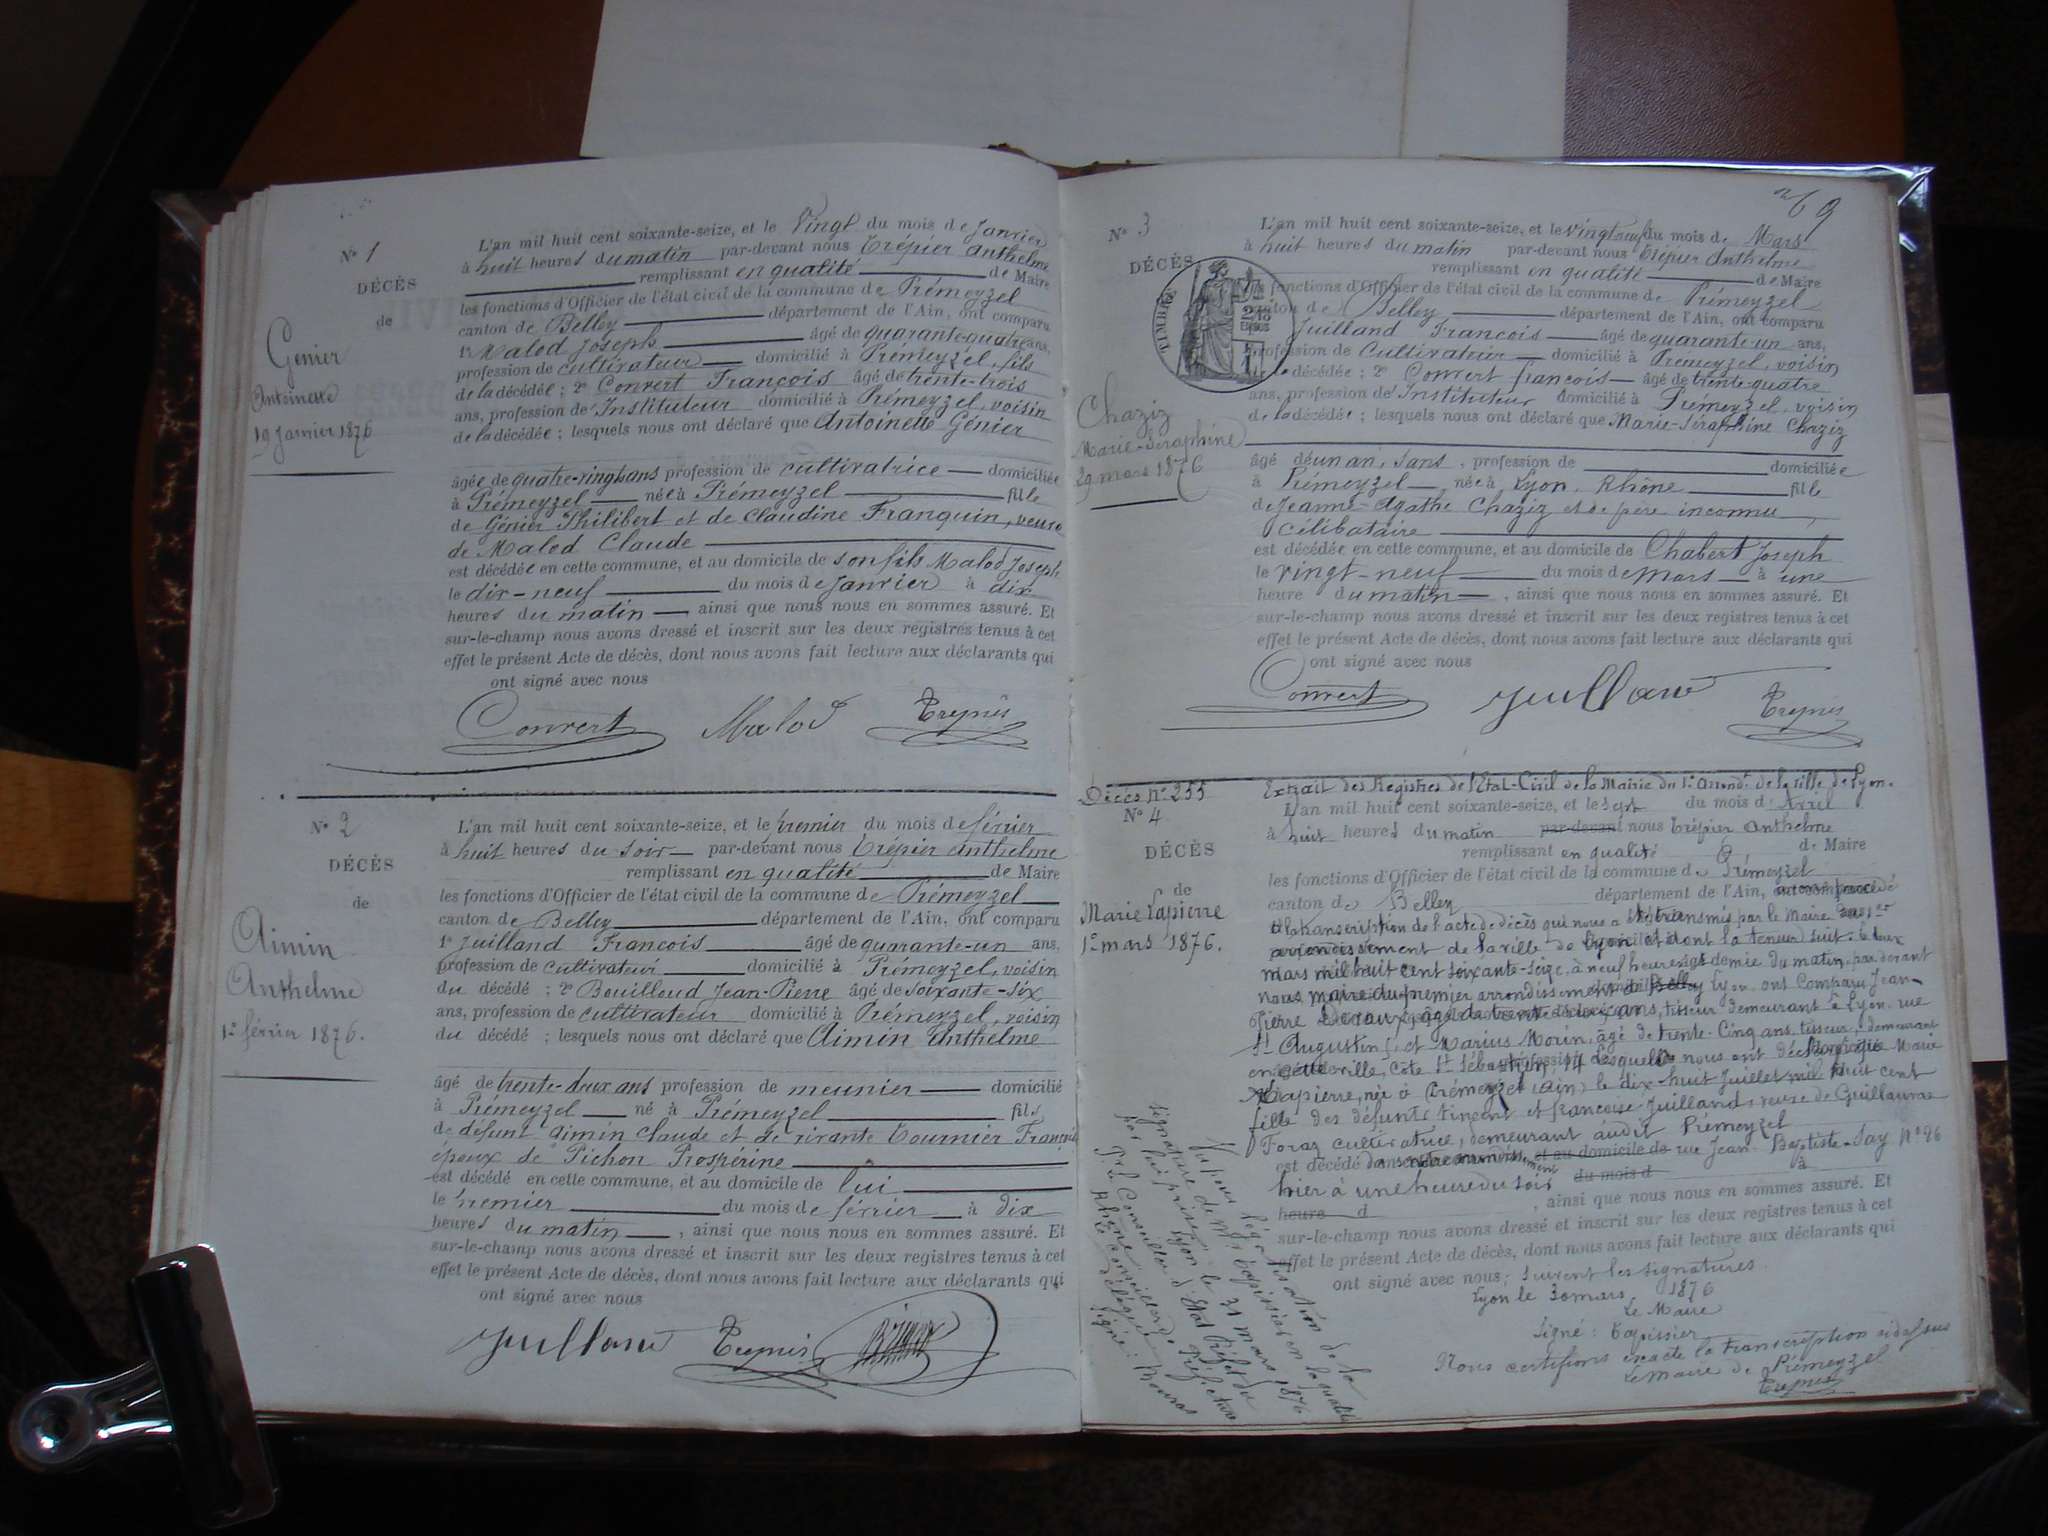 N° 1
DÉCÈS
de
Génier
Antoinette
19 Janvier 1876
L'an mil huit cent soixante-seize, et le Vingt du mois de Janvier
à huit heures du matin par-devant nous Trépier Anthelme
remplissant en qualité de Maire
les fonctions d'Officier de l'état civil de la commune de Prémeyzel
canton de Belley département de l'Ain, ont comparu
1° Malod Joseph âgé de quarante-quatre ans,
profession de cultivateur domicilié à Prémeyzel, fils
de la décédée ; 2° Convert François âgé de trente-trois
ans, profession de Instituteur domicilié à Prémeyzel, voisin
de la décédée ; lesquels nous ont déclaré que Antoinette Génier
âgée de quatre-vingt ans profession de cultivatrice domiciliée
à Prémeyzel née à Prémeyzel fille
de Génier Philibert et de Claudine Franquin, veuve
de Malod Claude
est décédée en cette commune, et au domicile de son fils Malod Joseph
le dix-neuf du mois de Janvier à dix
heures du matin ainsi que nous nous en sommes assuré. Et
sur-le-champ nous avons dressé et inscrit sur les deux registres tenus à cet
effet le présent Acte de décès, dont nous avons fait lecture aux déclarants qui
ont signé avec nous
Convert Malod Trepier
N° 2
DÉCÈS
de
Aimin
Anthelme
1er février 1876.
L'an mil huit cent soixante-seize, et le premier du mois de février
à huit heures du soir par-devant nous Trépier Anthelme
remplissant en qualité de Maire
les fonctions d'Officier de l'état civil de la commune de Prémeyzel
canton de Belley département de l'Ain, ont comparu
1° Juilland François âgé de quarante-un ans,
profession de cultivateur domicilié à Prémeyzel, voisin
du décédé ; 2° Bouilloud Jean-Pierre âgé de soixante-six
ans, profession de cultivateur domicilié à Prémeyzel, voisin
du décédé ; lesquels nous ont déclaré que Aimin Anthelme
âgé de trente-deux ans profession de meunier domicilié
à Prémeyzel né à Prémeyzel fils
de défunt Aimin Claude et de vivante Tournier
époux de Pichon Prospérine
est décédé en cette commune, et au domicile de lui
le premier du mois de février à dix
heures du matin , ainsi que nous nous en sommes assuré. Et
sur-le-champ nous avons dressé et inscrit sur les deux registres tenus à cet
effet le présent Acte de décès, dont nous avons fait lecture aux déclarants qui
ont signé avec nous
Juilland Trepier
69
N° 3
DÉCÈS
TIMBRE
Chaziz
Marie-Séraphine
29 mars 1876
L'an mil huit cent soixante-seize, et le vingt neuf du mois de Mars
à huit heures du matin par-devant nous Trépier Anthelme
remplissant en qualité de Maire
les fonctions d'Officier de l'état civil de la commune de Prémeyzel
canton de Belley département de l'Ain, ont comparu
Juilland François âgé de quarante-un ans,
profession de Cultivateur domicilié à Prémeyzel, voisin
décédée ; 2° Convert françois âgé de trente-quatre
ans, profession de Instituteur domicilié à Prémeyzel, voisin
de la décédée ; lesquels nous ont déclaré que Marie-Séraphine Chaziz
âgé d'un an, sans , profession de domiciliée
à Prémeyzel née à Lyon, Rhône fille
de Jeanne-Agathe Chaziz et de père inconnu
célibataire
est décédée en cette commune, et au domicile de Chabert Joseph
le vingt-neuf du mois de mars à une
heure du matin , ainsi que nous nous en sommes assuré. Et
sur-le-champ nous avons dressé et inscrit sur les deux registres tenus à cet
effet le présent Acte de décès, dont nous avons fait lecture aux déclarants qui
ont signé avec nous
Convert Juilland Trepier
Décès n° 255
N° 4
DÉCÈS
de
Marie Lapierre
1er mars 1876.
Extrait des Registres de l'Etat-Civil de la Mairie du 1er arrondt de la ville de Lyon.
L'an mil huit cent soixante-seize, et le sept du mois d'Avril
à huit heures du matin par-devant nous Trépier Anthelme
remplissant en qualité de Maire
les fonctions d'Officier de l'état civil de la commune de Prémeyzel
canton de Belley département de l'Ain, avons procédé
à la transcription de l'acte de décès qui nous a été transmis par le Maire du 1er
arrondissement de la ville de Lyon et dont la teneur suit: Le deux
mars mil huit cent soixante-seize, à neuf heures et demie du matin, par devant
nous maire du premier arrondissement de Lyon, ont comparu Jean-
Pierre âgé de trente ans, tisseur demeurant à Lyon, rue
St Augustin, et Marius Morin, âgé de trente-cinq ans, tisseur, demeurant
en cette ville, côte St Sébastien, 14 Lesquels nous ont déclaré que Marie
Lapierre, née à Prémeyzel (Ain) le dix-huit Juillet mil huit cent
fille des défunts Vincent et françoise Juilland, veuve de Guillaume
Foraz cultivatrice, demeurant audit Prémeyzel
est décédé dans notre arrondissement et au domicile de rue Jean-Baptiste-Say N° 26
hier à une heure du soir du mois d à
heure d , ainsi que nous nous en sommes assuré. Et
sur-le-champ nous avons dressé et inscrit sur les deux registres tenus à cet
effet le présent Acte de décès, dont nous avons fait lecture aux déclarants qui
ont signé avec nous; suivent les signatures.
Lyon le 30 mars 1876
Le Maire
Signé: Tapissier
Nous certifions exacte la transcription ci-dessus
Le Maire de Prémeyzel
Trepier
Vu pour légalisation de la
signature de Mr Tapissier en la qualité
par lui prise, Lyon le 31 mars 1876
Pr le Conseiller d'Etat Préfet du
Rhône le conseiller de Préfecture
délégué
Signé: